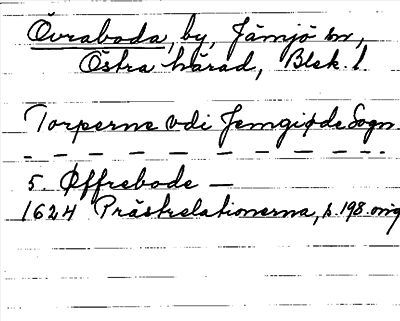 Övraboda, by, Jämjö sn,
Östra härad, Blek. l.
Torperne vdi Jemgiøde Sogn
5. Øffrebode —
1624 Prästrelationerna, s. 198. orig